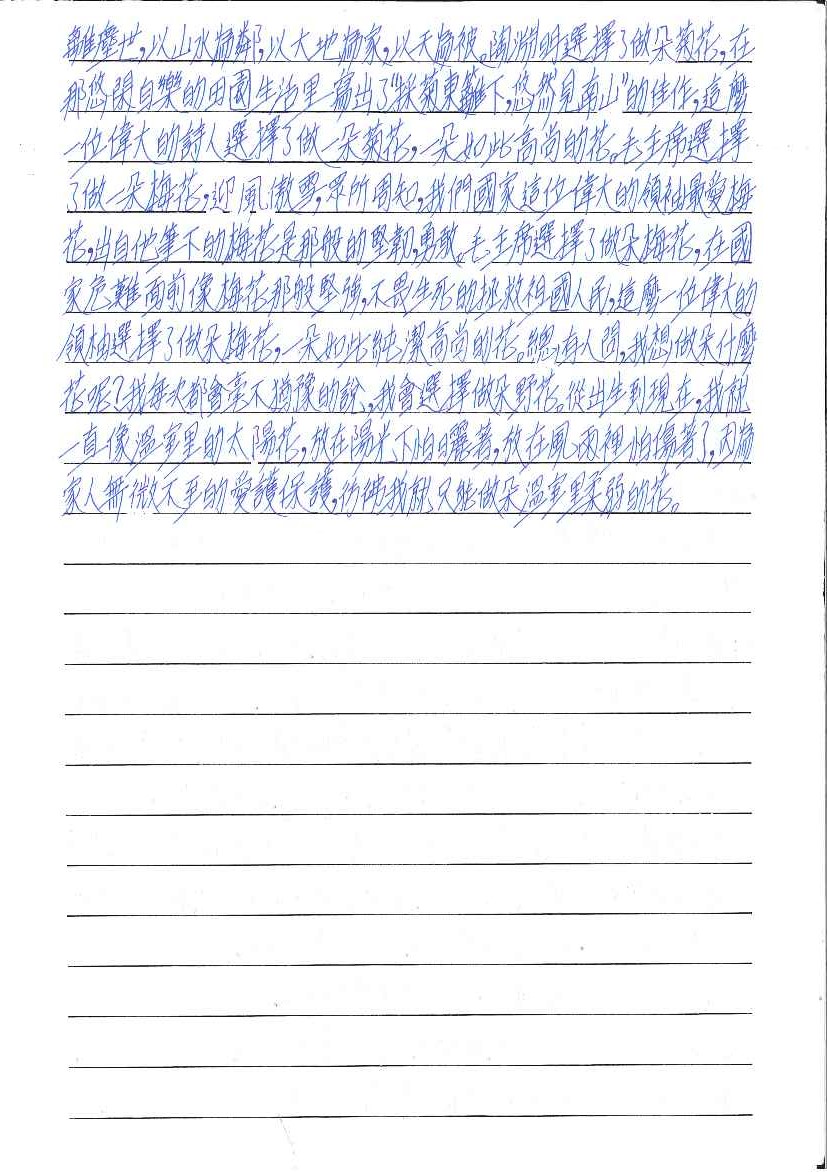 離塵世,以山水為鄰,以大地為家,以天為被。陶淵明選擇了做朵菊花,在
那悠閑自樂的田園生活里寫出了"採菊東籬下,悠然見南山"的佳作,這麼
一位偉大的詩人選擇了做一朵菊花,一朵如此高尚的花。毛主席選擇
了做一朵梅花,迎風傲雪,眾所周知,我們國家這位偉大的領袖最愛梅
花,出自他筆下的梅花是那般的堅韌,勇敢。毛主席選擇了做朵梅花,在國
家危難面前像梅花那般堅強,不畏生死的拯救祖國人民,這麼一位偉大的
領袖選擇了做朵梅花,一朵如此純潔高尚的花。總有人問,我想做朵什麼
花呢?我每次都會毫不猶豫的說,我會選擇做朵野花。從出生到現在,我就
一直像溫室里的太陽花,放在陽光下怕曬著,放在風雨裡怕傷著了,因為
家人無微不至的愛護保護,彷彿我就只能做朵溫室里柔弱的花。